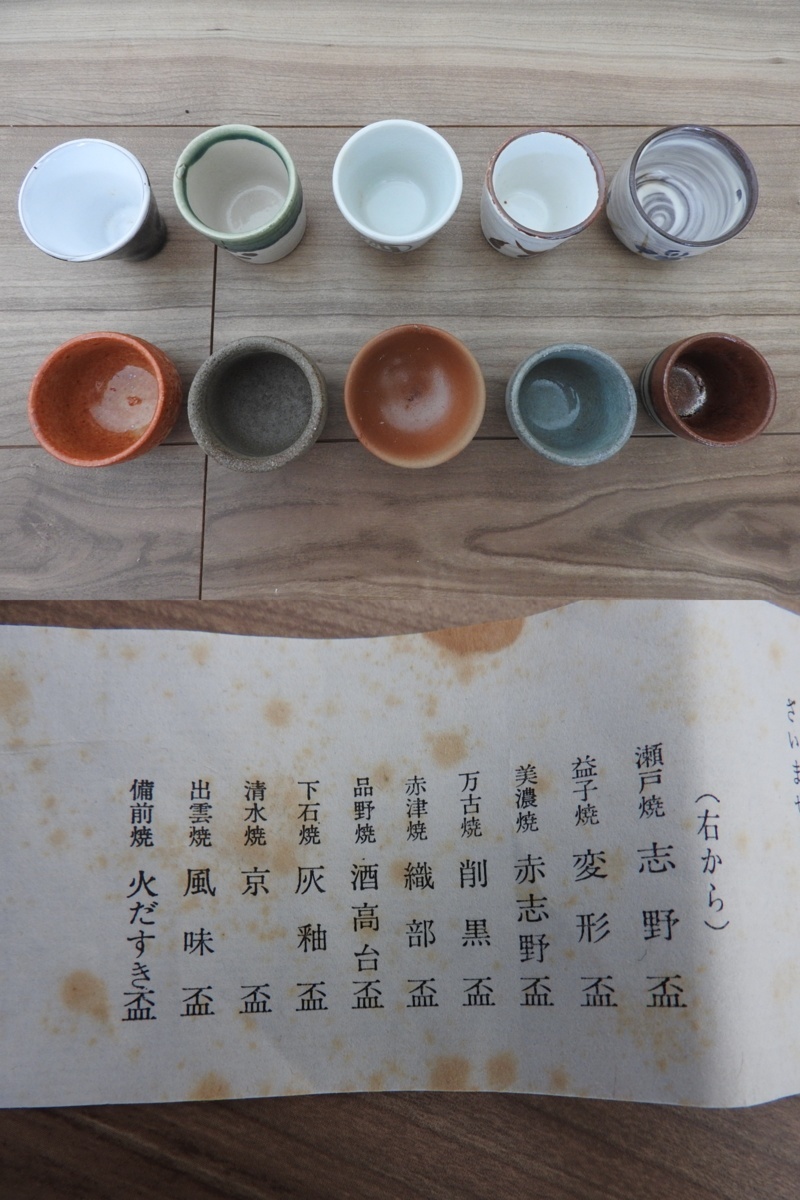 さいませ
（右から）
瀬戸焼 志野盃
益子焼 変形盃
美濃焼 赤志野盃
万古焼 削黒盃
赤津焼 織部盃
品野焼 酒高台盃
下石焼 灰釉盃
清水焼 京盃
出雲焼 風味盃
備前焼 火だすき盃